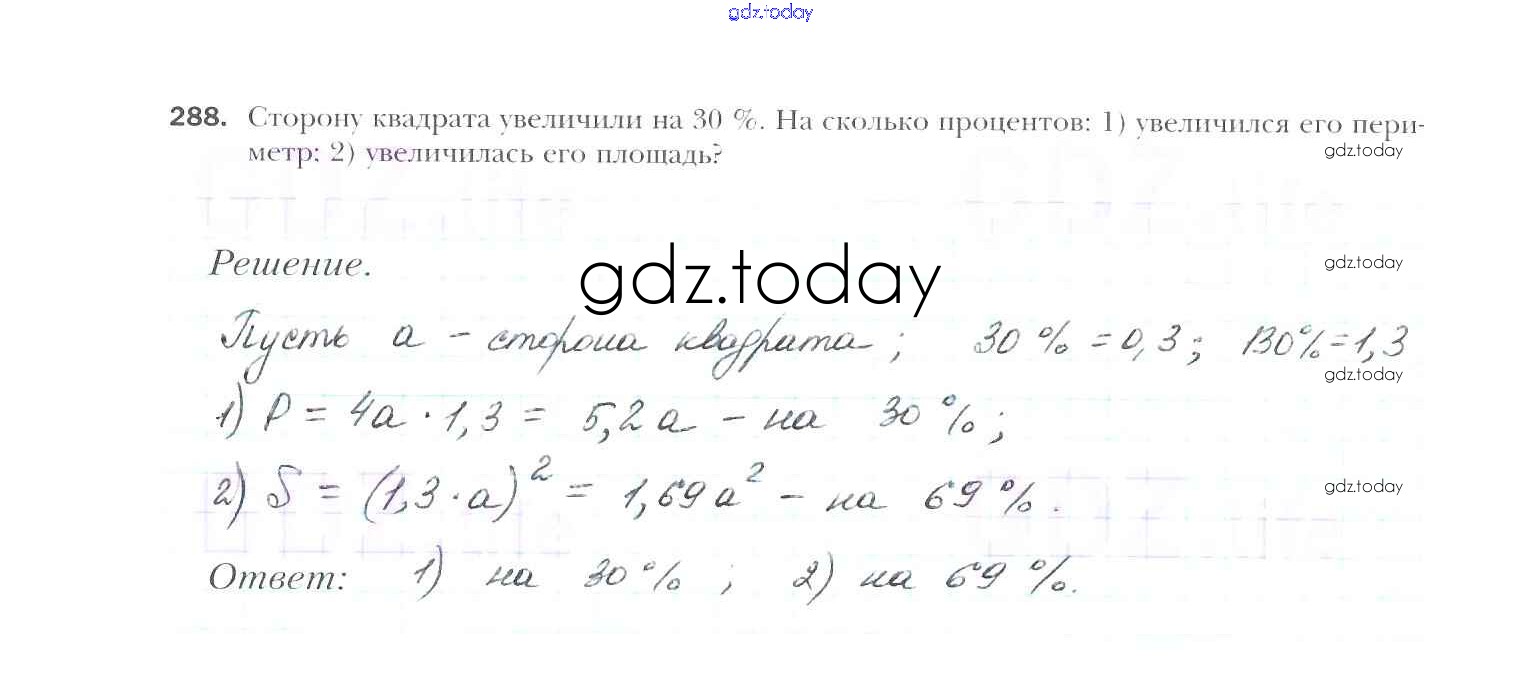 gdz.today
288. Сторону квадрата увеличили на 30 %. На сколько процентов: 1) увеличился его пери-
метр: 2) увеличилась его площадь?
gdz.today
Решение.
gdz.today
gdz.today
Пусть a - сторона квадрата; 30% = 0,3; 130% = 1,3
gdz.today
1) P = 4a · 1,3 = 5,2a - на 30%;
2) S = (1,3 · a)² = 1,69a² - на 69%.
gdz.today
Ответ: 1) на 30%; 2) на 69%.